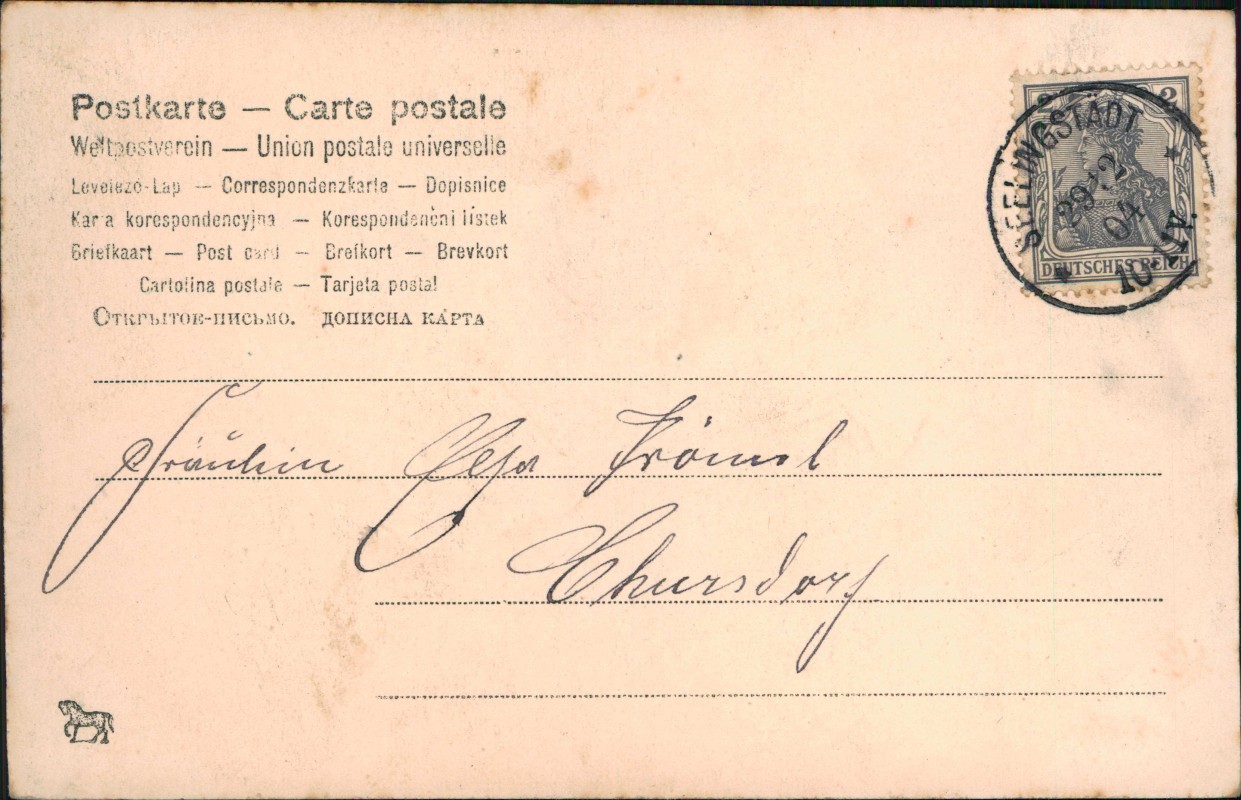 Postkarte — Carte postale
Weltpostverein — Union postale universelle
Levelező-Lap — Correspondenzkarte — Dopisnice
Karta korespondencyjna — Korespondenčni listek
Briefkaart — Post card — Brefkort — Brevkort
Cartolina postale — Tarjeta postal
Открытое-письмо. ДОПИСНА КАРТА
2
SEELINGSTÄDT
29.12
04
10-11V.
DEUTSCHES REICH
Fräulein Elsa Trömel
Chursdorf